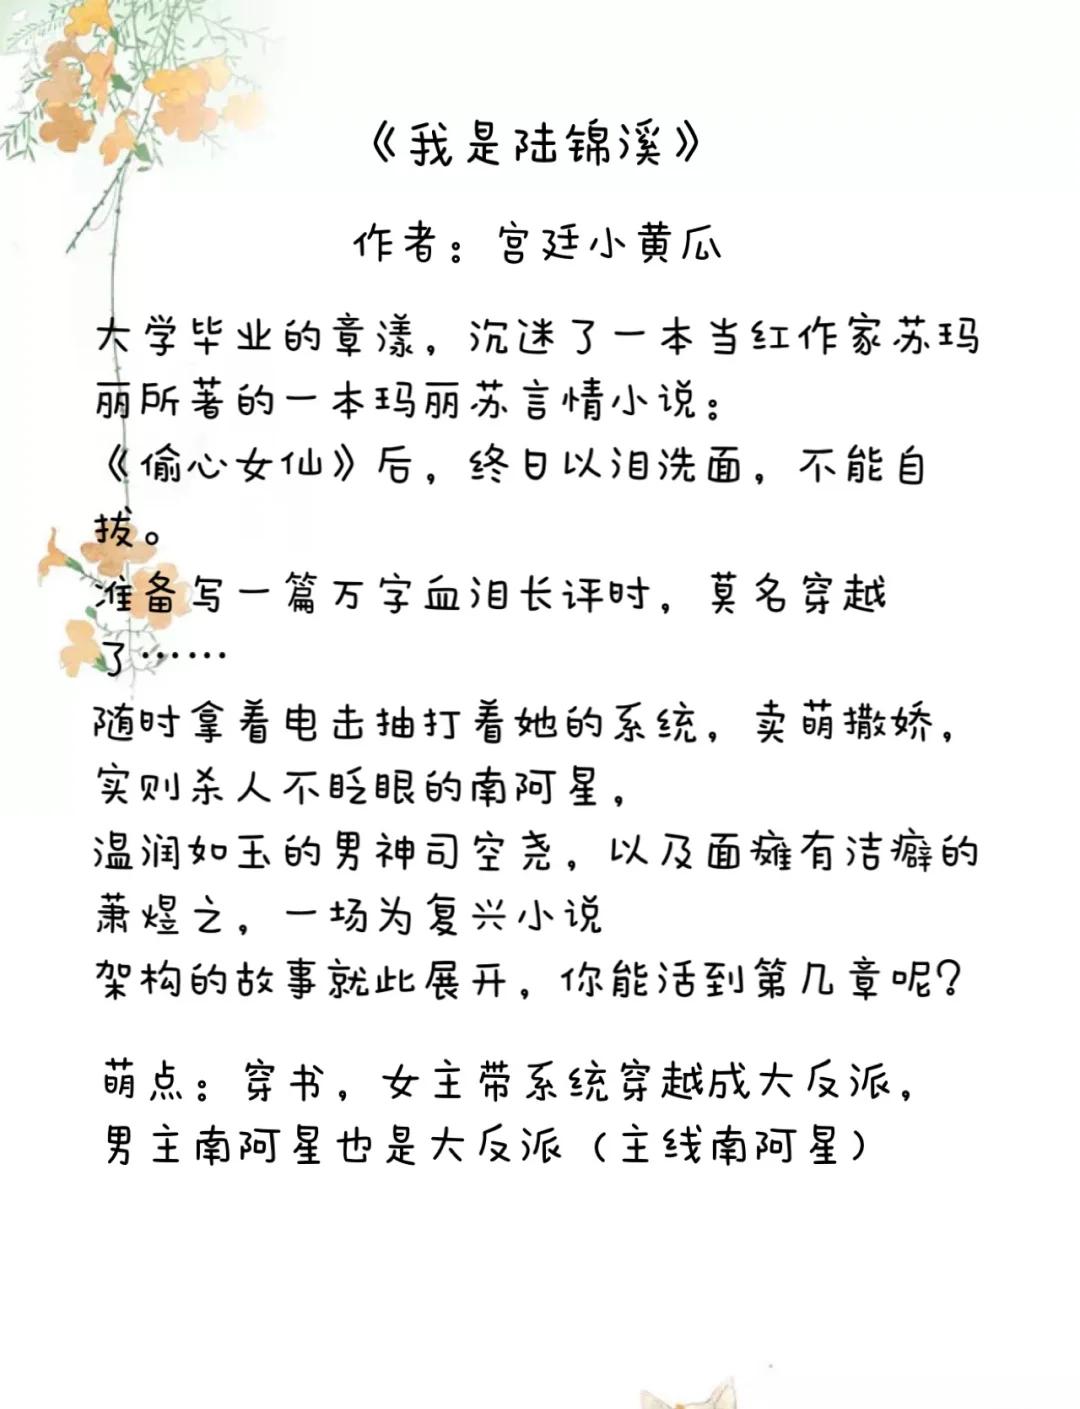 《我是陆锦溪》
作者：宫廷小黄瓜
大学毕业的章漾，沉迷了一本当红作家苏玛
丽所著的一本玛丽苏言情小说：
《偷心女仙》后，终日以泪洗面，不能自
拔。
准备写一篇万字血泪长评时，莫名穿越
了……
随时拿着电击抽打着她的系统，卖萌撒娇，
实则杀人不眨眼的南阿星，
温润如玉的男神司空尧，以及面瘫有洁癖的
萧煜之，一场为复兴小说
架构的故事就此展开，你能活到第几章呢？
萌点：穿书，女主带系统穿越成大反派，
男主南阿星也是大反派（主线南阿星）